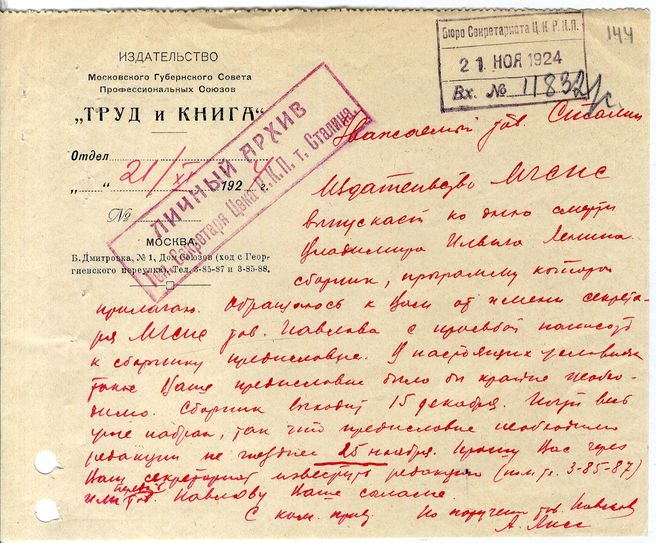 ИЗДАТЕЛЬСТВО
Московского Губернского Совета
Профессиональных Союзов
„ТРУД и КНИГА“
Отдел
„ “ 21/XI 1924 г.
№
МОСКВА,
Б. Дмитровка, № 1, Дом Союзов (ход с Геор-
гиевского переулка). Тел. 3-85-87 и 3-85-88.
Бюро Секретариата Ц.К Р.К.П.
21 НОЯ 1924
Вх. № 11832/с
144
ЛИЧНЫЙ АРХИВ
Ген. Секретаря Цека Р.К.П. т. Сталина
Уважаемый тов. Сталин
Издательство МГСПС
выпускает ко дню смерти
Владимира Ильича Ленина
сборник, программу которого
прилагаю. Обращаюсь к Вам от имени секрета-
ря МГСПС тов. Павлова с просьбой написать
к сборнику предисловие. В настоящих условиях
такое Ваше предисловие было бы крайне необхо-
димо. Сборник выходит 15 декабря. Почти весь
уже набран, так что предисловие необходимо
редакции не позднее 25 ноября. Прошу Вас через
Ваш секретариат известить редакцию (тел. 3-85-87)
или тов. Павлову Ваше согласие.
С ком. прив. По поручению тов. Павлова
А. Лисс